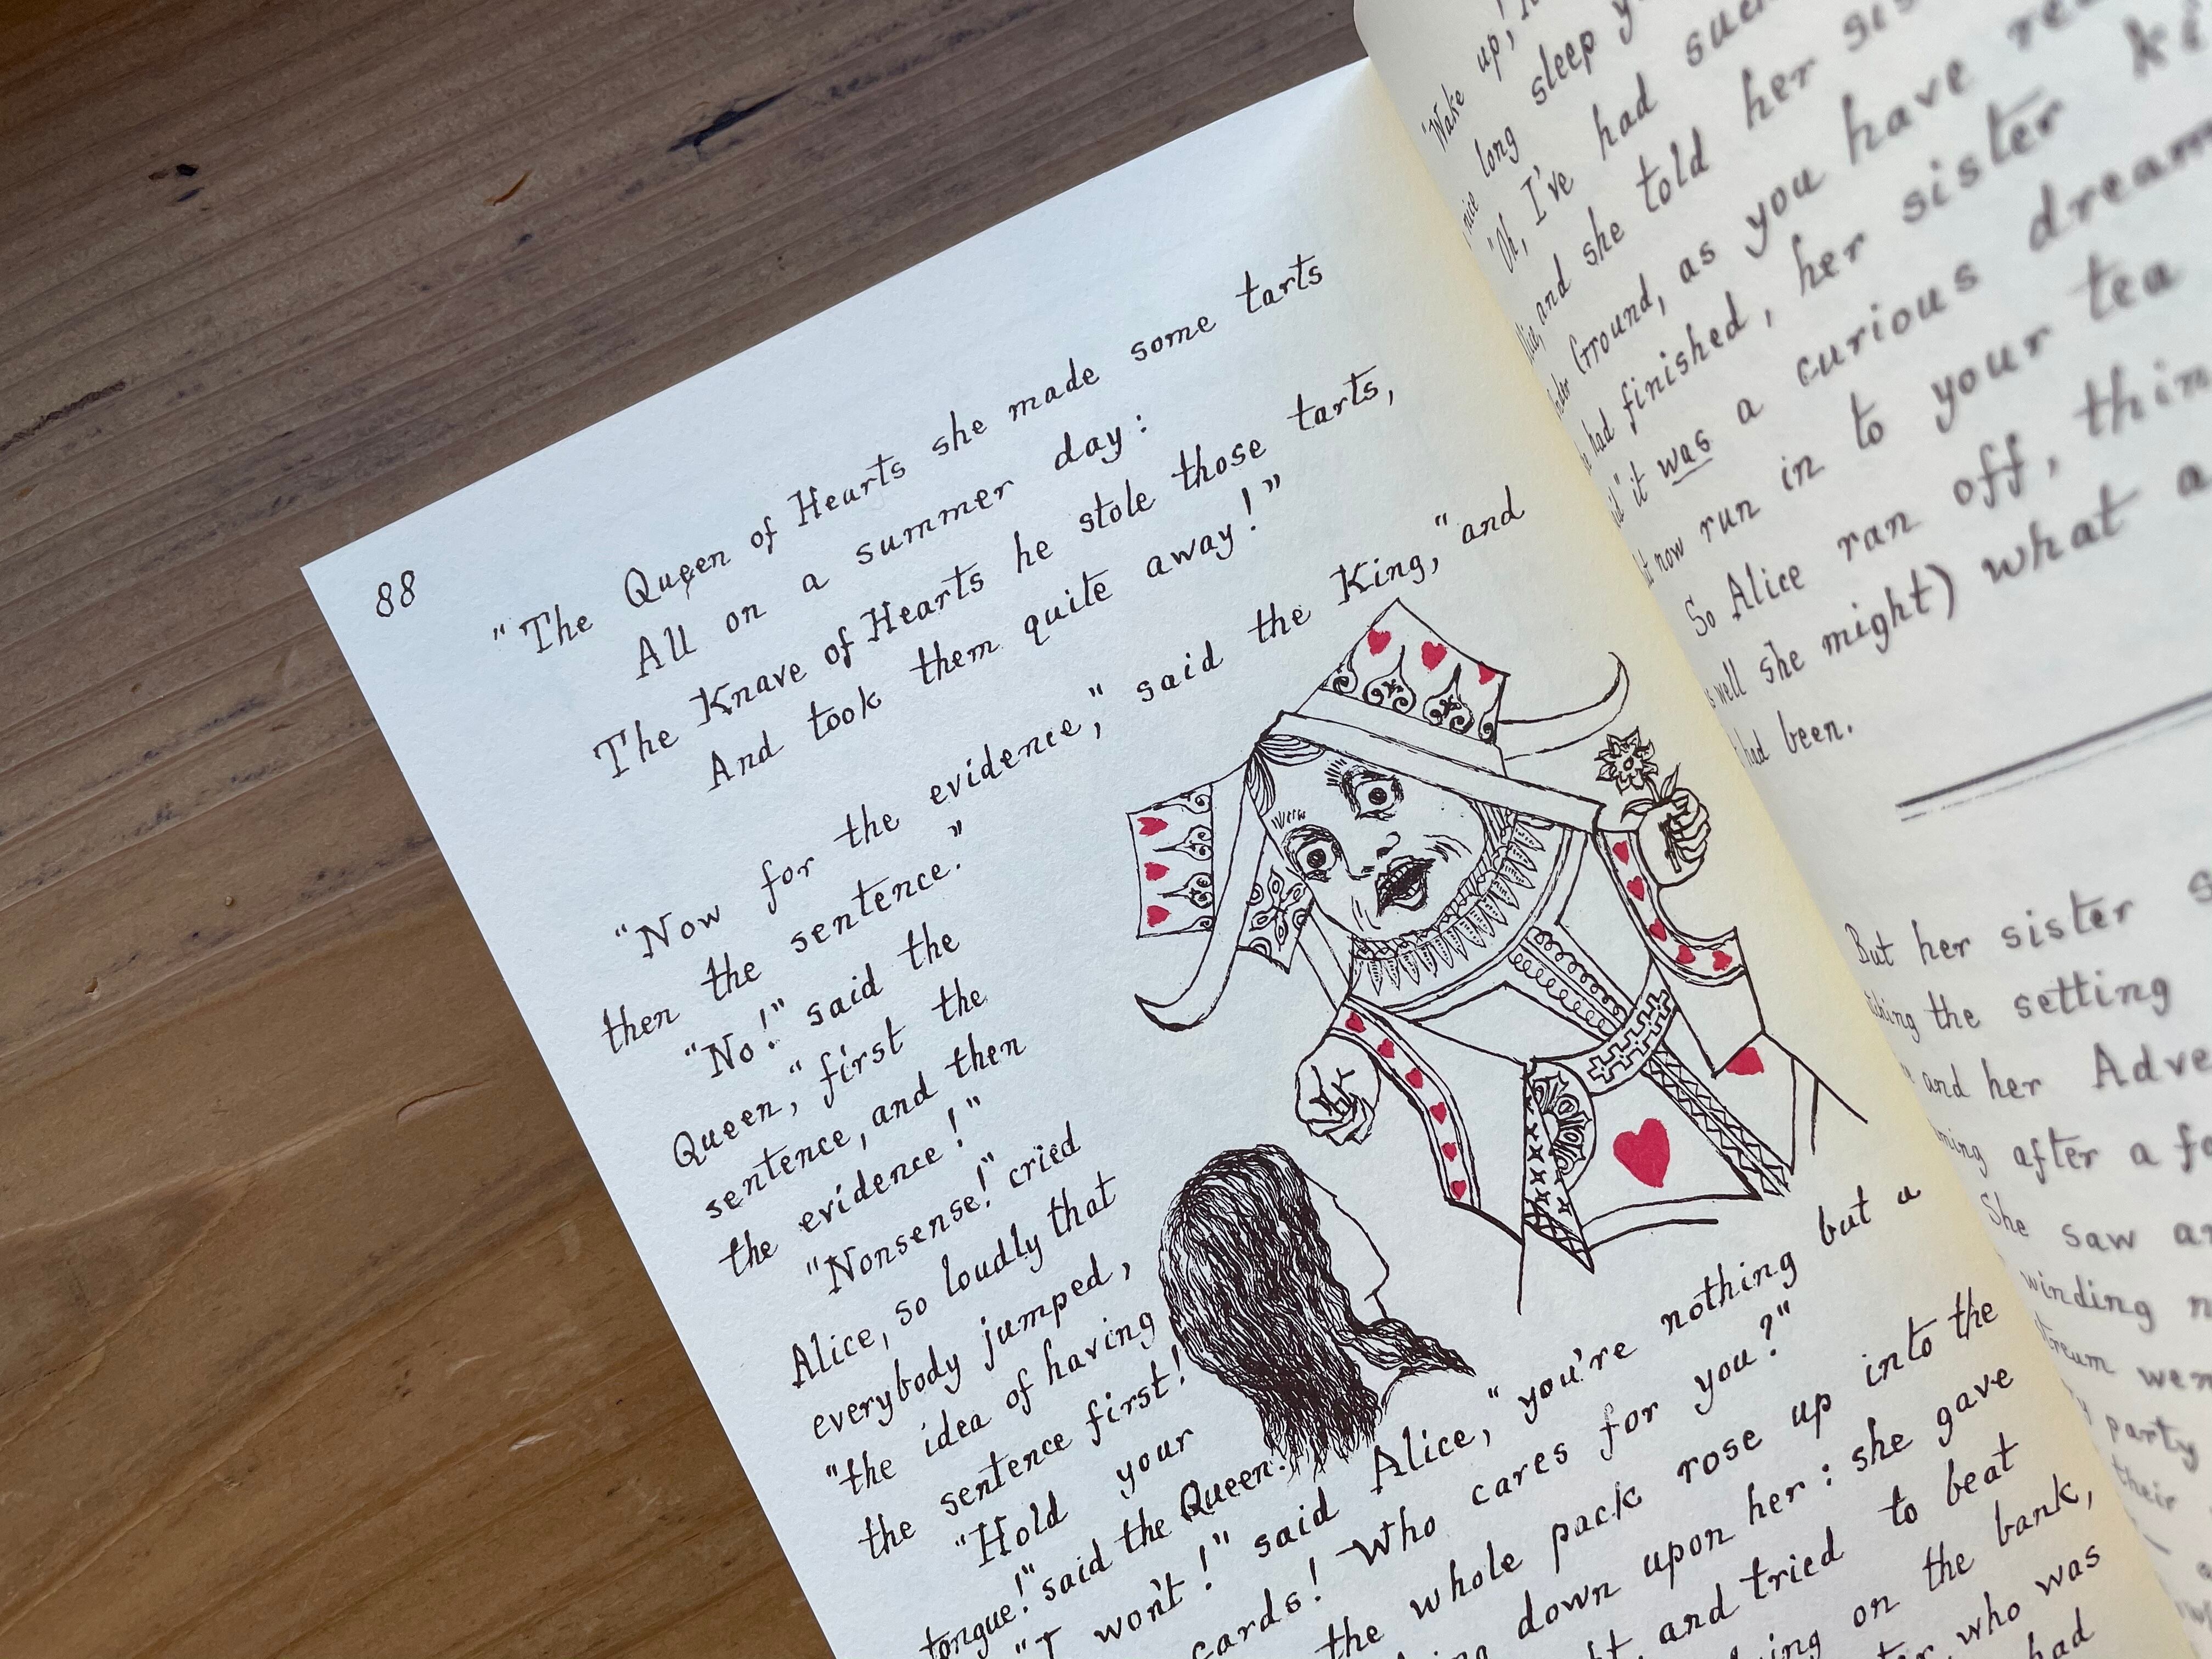 88
"The Queen of Hearts she made some tarts
All on a summer day:
The Knave of Hearts he stole those tarts,
And took them quite away!"
"Now for the evidence," said the King, "and
then the sentence."
"No!" said the
Queen, "first the
sentence, and then
the evidence!"
"Nonsense!" cried
Alice, so loudly that
everybody jumped,
"the idea of having
the sentence first!
"Hold your
tongue!" said the Queen.
"I won't!" said Alice, "you're nothing but a
cards! Who cares for you?"
the whole pack rose up into the
down upon her: she gave
and tried to beat
on the bank,
who was
had
"Wake up,
nice long sleep
"Oh, I've had such
and she told her
Ground, as you have
had finished, her sister
it was a curious dream
now run in to your tea
So Alice ran off,
well she might) what a
had been.
But her sister
the setting
and her
after a
She saw
winding
party
their